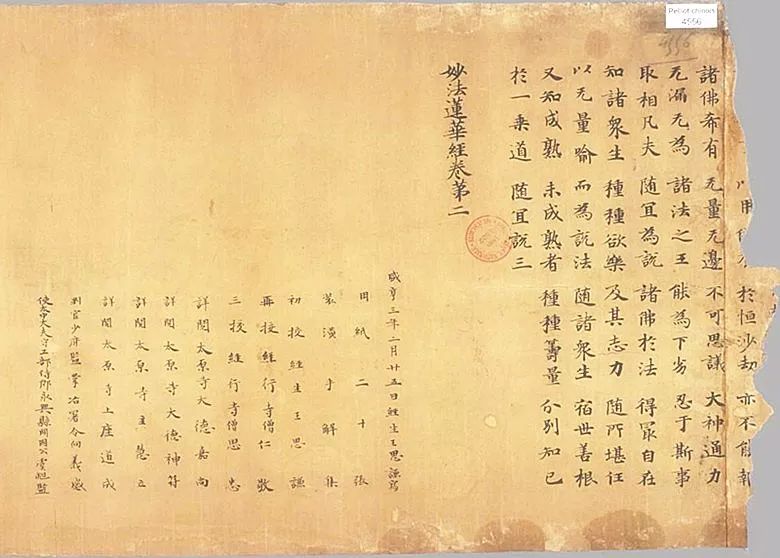 Pelliot chinois
4556
4556
以用 於恒沙劫 亦不能報
諸佛希有 无量无邊 不可思議 大神通力
无漏无為 諸法之王 能為下劣 忍于斯事
取相凡夫 隨冝為說 諸佛於法 得冣自在
知諸衆生 種種欲樂 及其志力 隨所堪任
以无量喻 而為說法 隨諸衆生 宿世善根
又知成熟 未成熟者 種種籌量 分別知已
於一乗道 隨冝說三
妙法蓮華經卷第二
咸亨三年二月廿五日經生王思謙寫
用紙二十張
装潢手解集
初校經生王思謙
再校經行寺僧仁敬
三校經行寺僧思忠
詳閱太原寺大德嘉尚
詳閱太原寺大德神符
詳閱太原寺主慧立
詳閱太原寺上座道成
判官少府監掌冶署令向義感
使太中大夫守工部侍郎永興縣開國公虞昶監